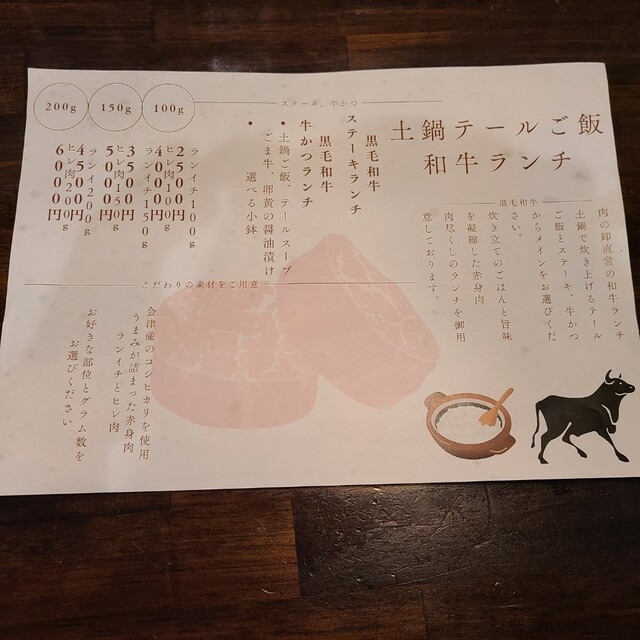 土鍋テールご飯
和牛ランチ
黒毛和牛
肉の卸直営の和牛ランチ
土鍋で炊き上げるテール
ご飯とステーキ、牛かつ
からメインをお選びくだ
さい。
炊き立てのごはんと旨味
を凝縮した赤身肉
肉尽くしのランチを御用
意しております。
ステーキ、牛かつ
黒毛和牛
ステーキランチ
黒毛和牛
牛かつランチ
● 土鍋ご飯、テールスープ
ごま牛、卵黄の醤油漬け
● 選べる小鉢
100g
ランイチ100g
2500円
ヒレ肉100g
4000円
150g
ランイチ150g
3500円
ヒレ肉150g
5000円
200g
ランイチ200g
4500円
ヒレ肉200g
6000円
こだわりの素材をご用意
会津産のコシヒカリを使用
うまみが詰まった赤身肉
ランイチとヒレ肉
お好きな部位とグラム数を
お選びください。